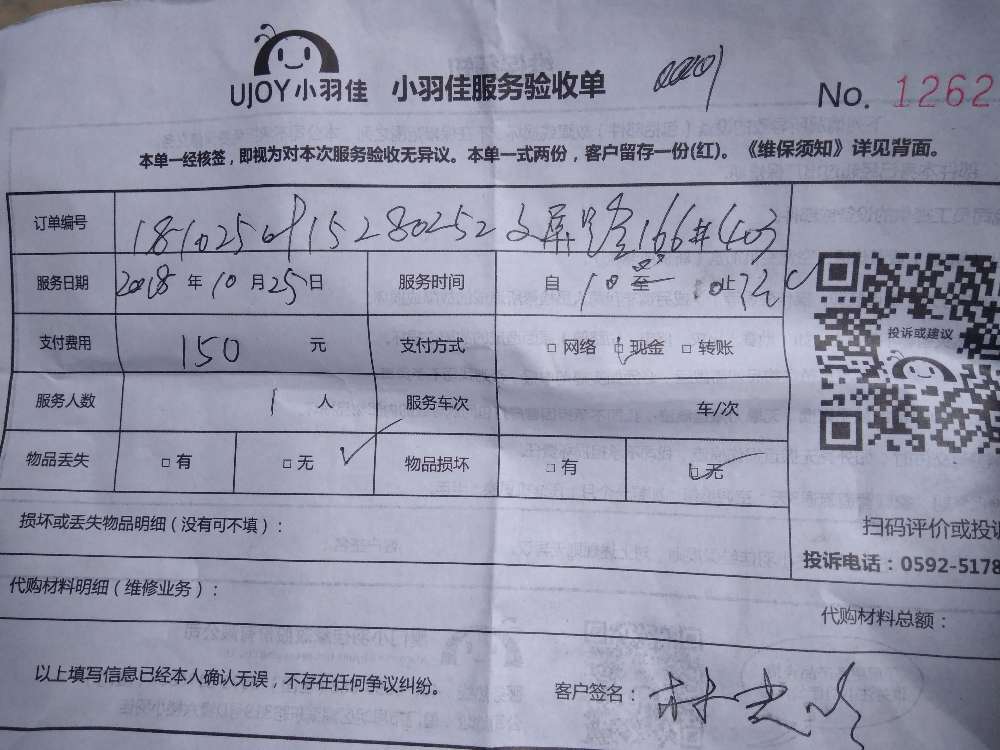 UJOY小羽佳 小羽佳服务验收单 No. 1262
本单一经核签，即视为对本次服务验收无异议。本单一式两份，客户留存一份(红)。《维保须知》详见背面。
订单编号 166#403
服务日期 2018年10月25日 服务时间 自 至 止
支付费用 150 元 支付方式 □ 网络 □ 现金 □ 转账
投诉或建议
服务人数 1 人 服务车次 车/次
物品丢失 □ 有 □ 无 物品损坏 □ 有 □ 无
损坏或丢失物品明细（没有可不填）：
扫码评价或投诉
投诉电话：0592-5178
代购材料明细（维修业务）：
代购材料总额：
以上填写信息已经本人确认无误，不存在任何争议纠纷。 客户签名：